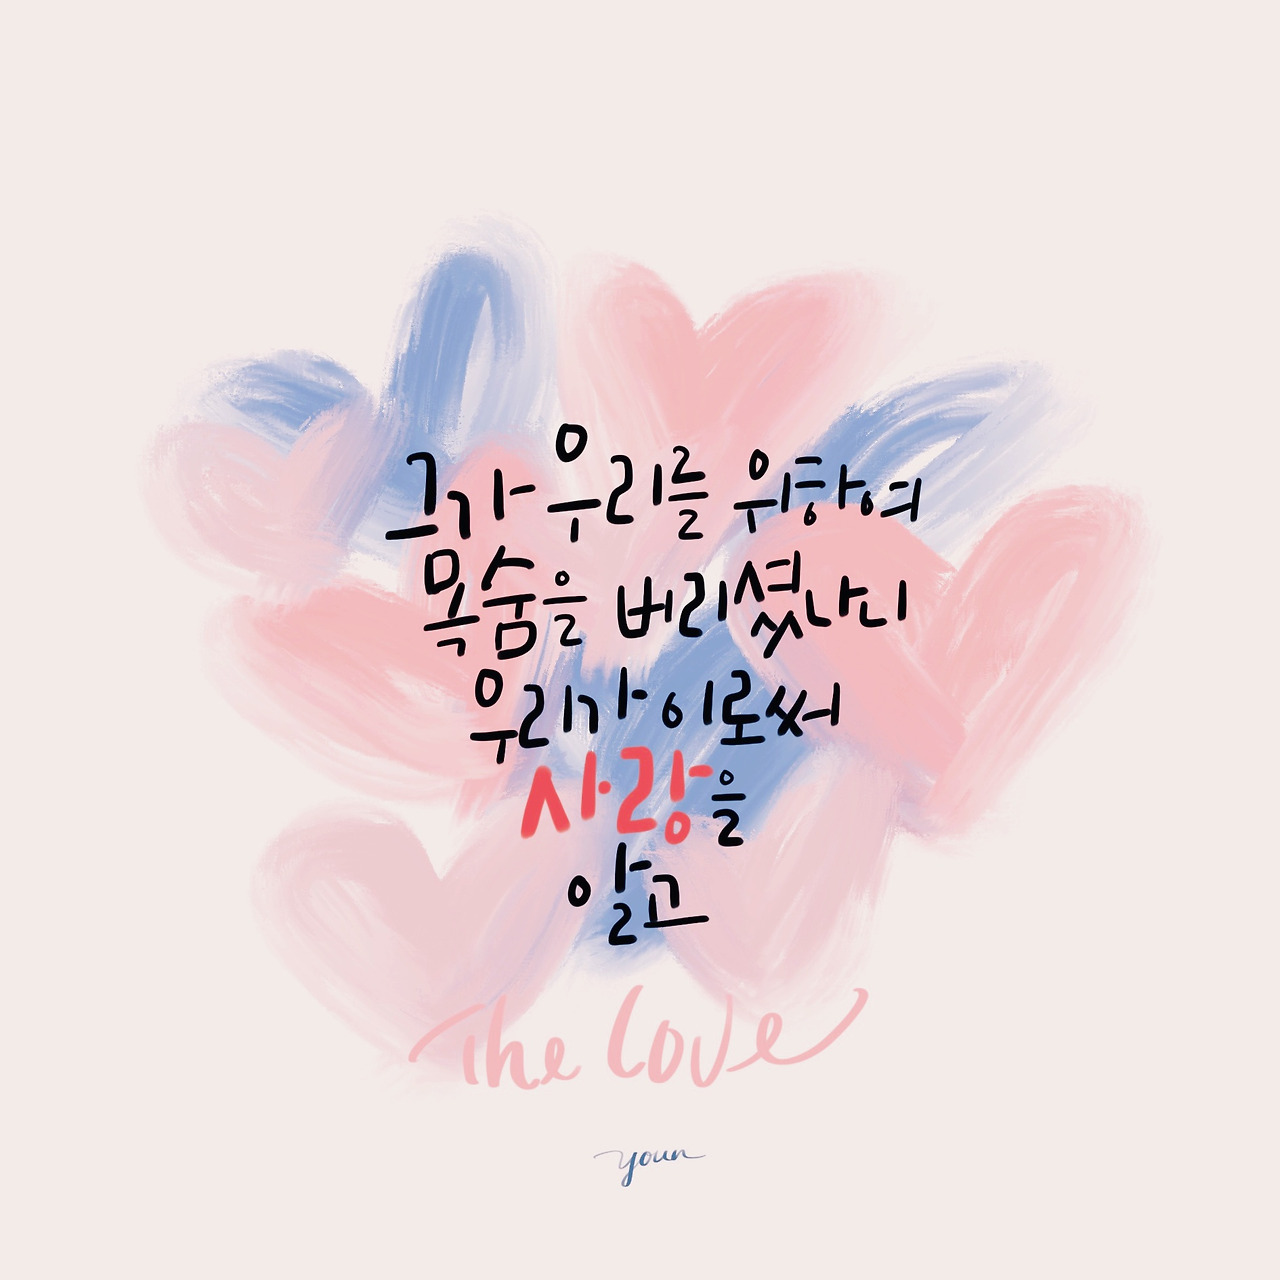 그가 우리를 위하여
목숨을 버리셨나니
우리가 이로써
사랑을
알고
The Love
youn